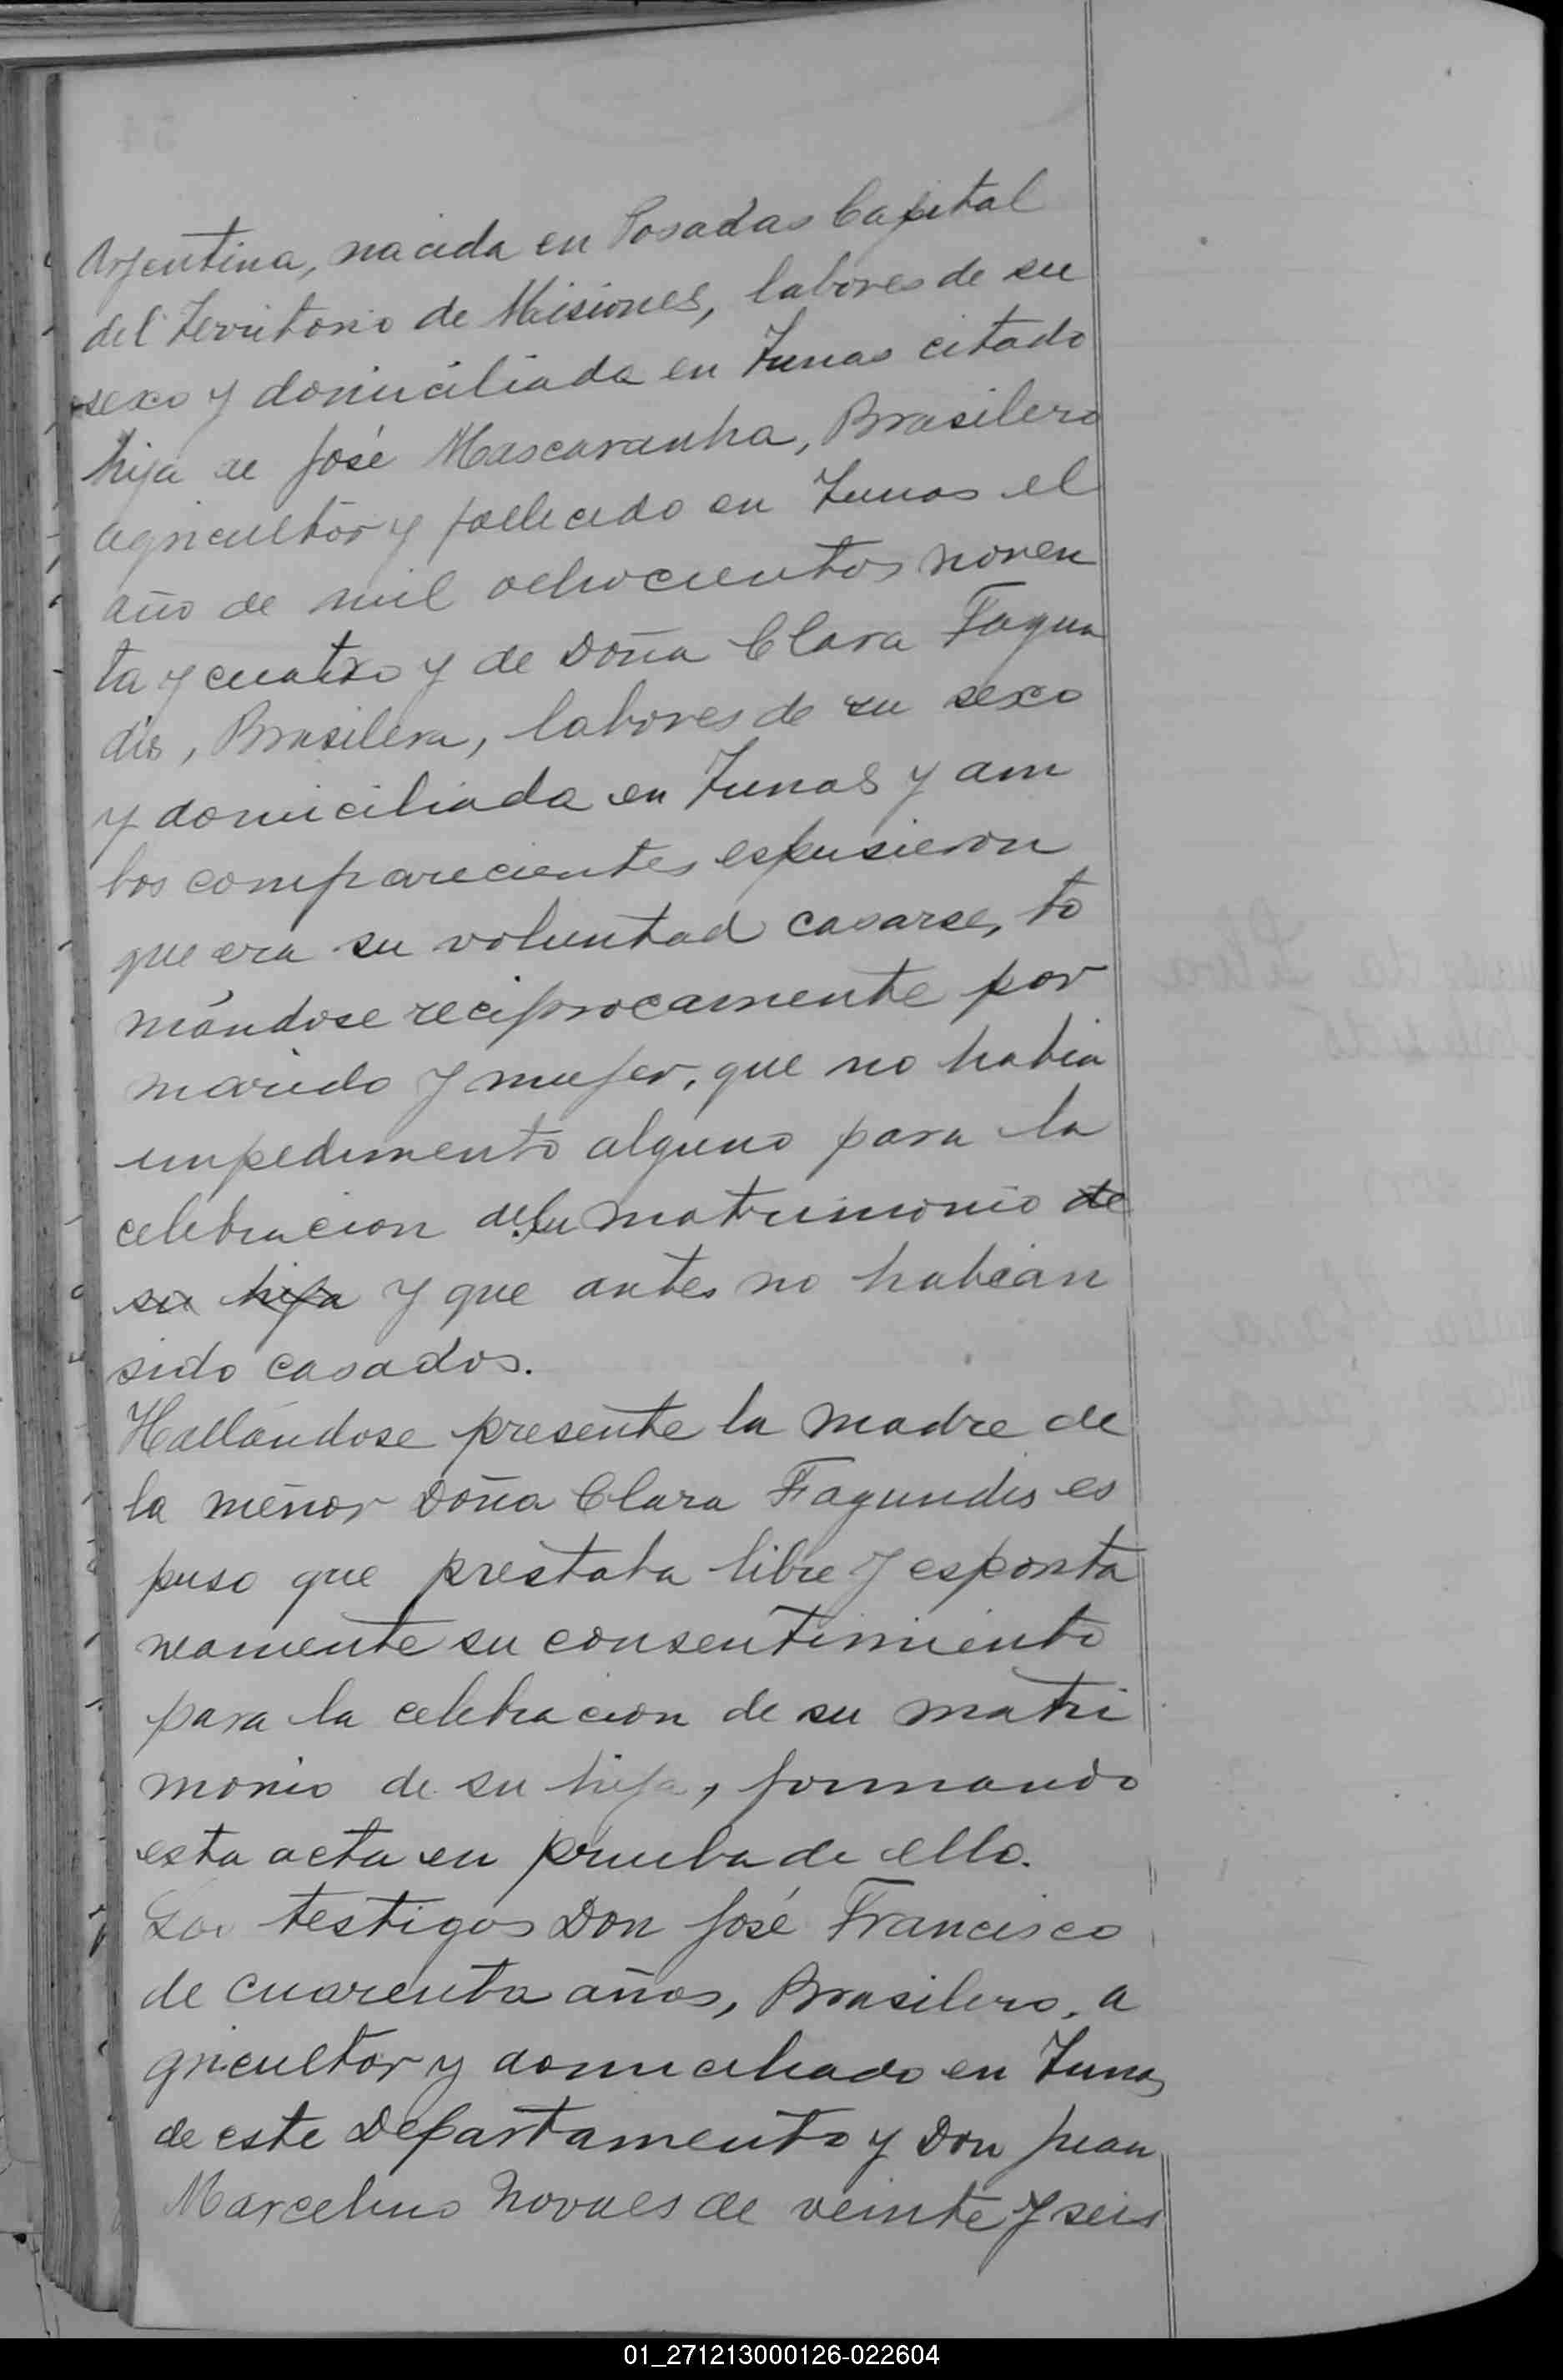 Arjentina, nacida en Posadas Capital
del Territorio de Misiones, labores de su
sexo y domiciliada en Tunas citado
hija de José Mascaranha, Brasilero
agricultor y fallecido en Tunas el
año de mil ochocientos noven
ta y cuatro y de Doña Clara Fagun
dis, Brasilera, labores de su sexo
y domiciliada en Tunas y am
bos comparecientes espusieron
que era su voluntad casarse, to
mándose reciprocamente por
marido y mujer, que no habia
impedimento alguno para la
celebracion de su matrimonio de
su hija y que antes no habian
sido casados.
Hallándose presente la madre de
la menor Doña Clara Fagundis es
puso que prestaba libre y esponta
neamente su consentimiento
para la celebracion de su matri
monio de su hija, formando
esta acta en prueba de ello.
Los testigos Don José Francisco
de cuarenta años, Brasilero, a
gricultor y domiciliado en Tunas
de este Departamento y Don Juan
Marcelino Novaes de veinte y seis
01_271213000126-022604